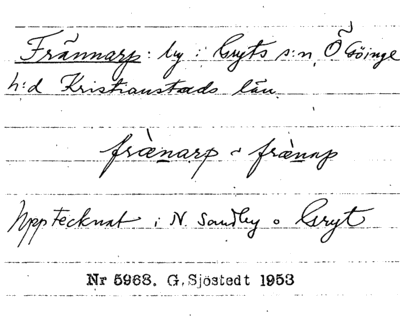 Frännarp: by i Gryts s:n, Ö Göinge
h:d Kristianstads län.
fràenarp o frànnp
Upptecknat i N. Sandby o Gryt
Nr 5968. G. Sjöstedt 1953